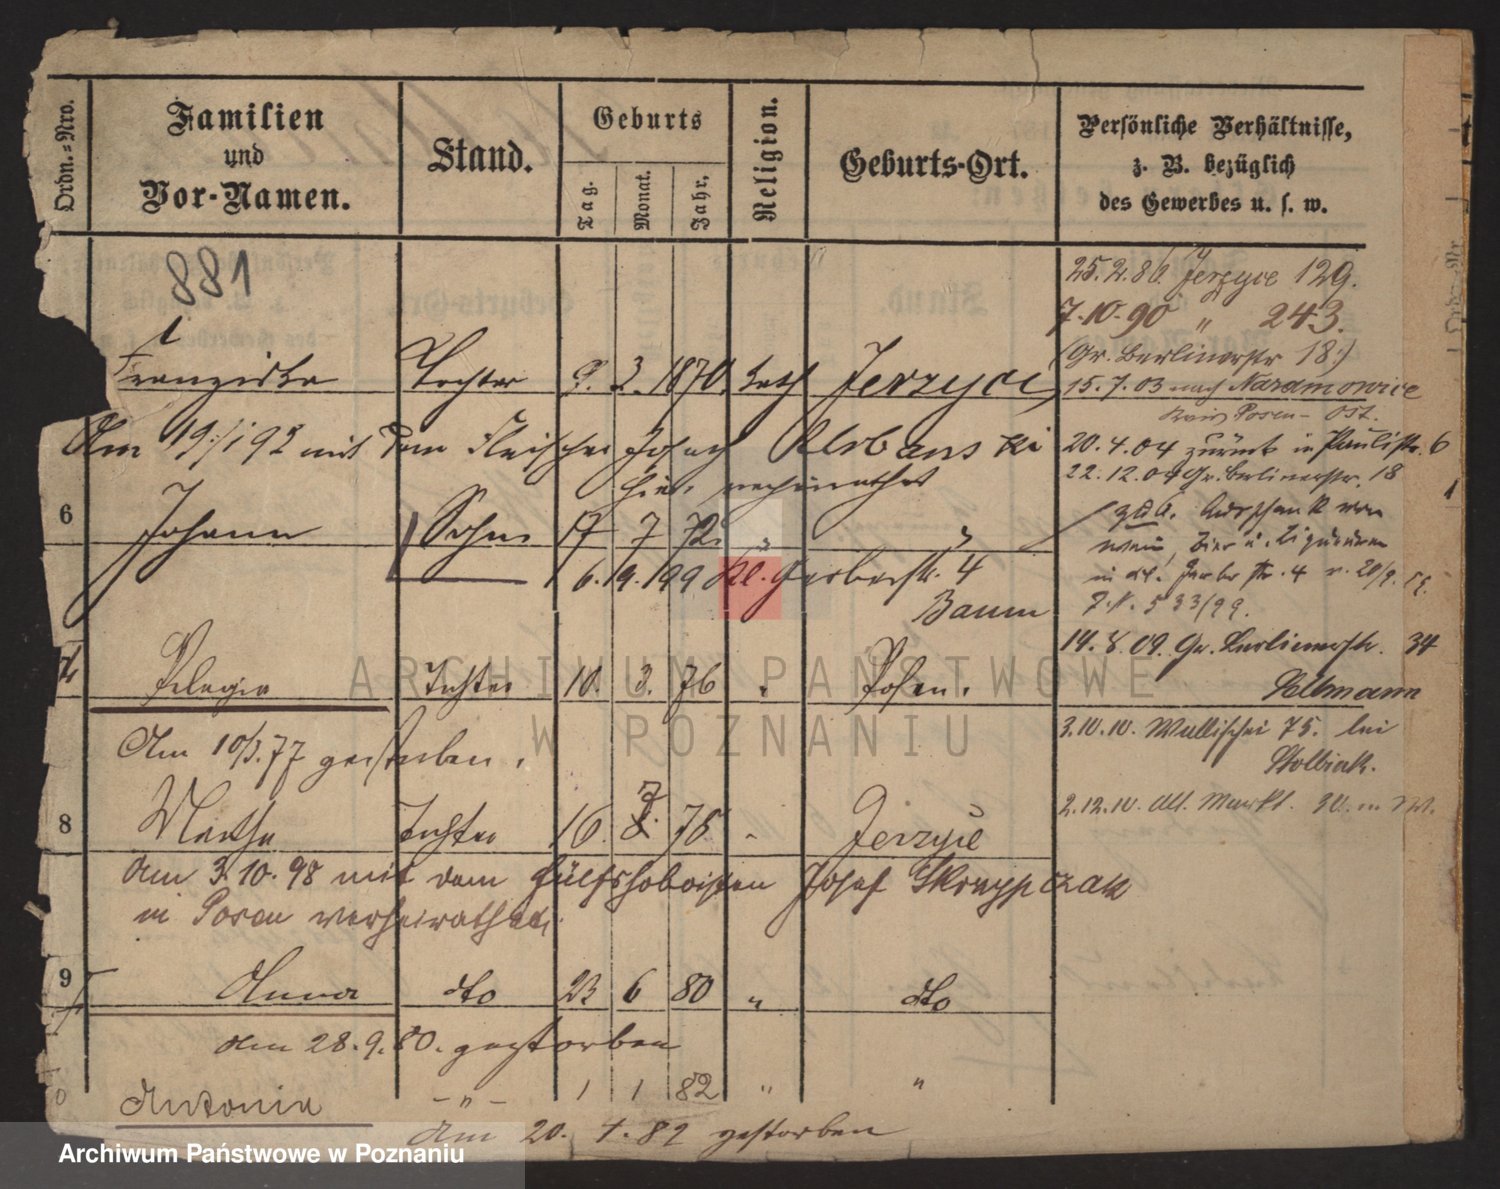 Ordn.-Nro.
Familien und Vor-Namen.
Stand.
Geburts
Tag.
Monat.
Jahr.
Religion.
Geburts-Ort.
Persönliche Verhältnisse, z. B. bezüglich des Gewerbes u. s. w.
881
25.2.86 Jerzyce 129.
7.10.90 " 243.
(Gr. Berlinerstr 18.)
Franziska Tochter 9. 2. 1870. kath Jerzyce
15.7.03 nach Naramowice
Kreis Posen-Ost.
Am 19/1 92 mit dem Fleischer Joseph Urbanski
hier verheirathet
20.4.04 zurück in Paulistr. 6
22.12.04 Gr. Berlinerstr. 18
6 Johann Sohn 17 7 72 "
6.9.99 Kl. Gerberstr. 4
Baum
Ausschank von
Wein, Bier u. Liqueuren
in Kl. Gerberstr. 4 v. 20/9.
533/99.
14.8.09. Gr. Berlinerstr. 34
7 Pelagia Tochter 10. 3. 76 " Posen.
Am 10/3.77 gestorben.
3.10.10. Wallischei 75. bei
Stolbiak.
8 Martha Tochter 16. 7. 78 " Jerzyce
2.12.10. Alt. Markt.
Am 3.10.98 mit dem Hülfshoboisten Josef Skrzypczak
in Posen verheirathet.
9 Anna dto 23 6 80 " dto
Am 28.9.80. gestorben
0 Antonia -"- 1 1 82 " "
Am 20. 1. 82 gestorben
ARCHIWUM PAŃSTWOWE
W POZNANIU
Archiwum Państwowe w Poznaniu